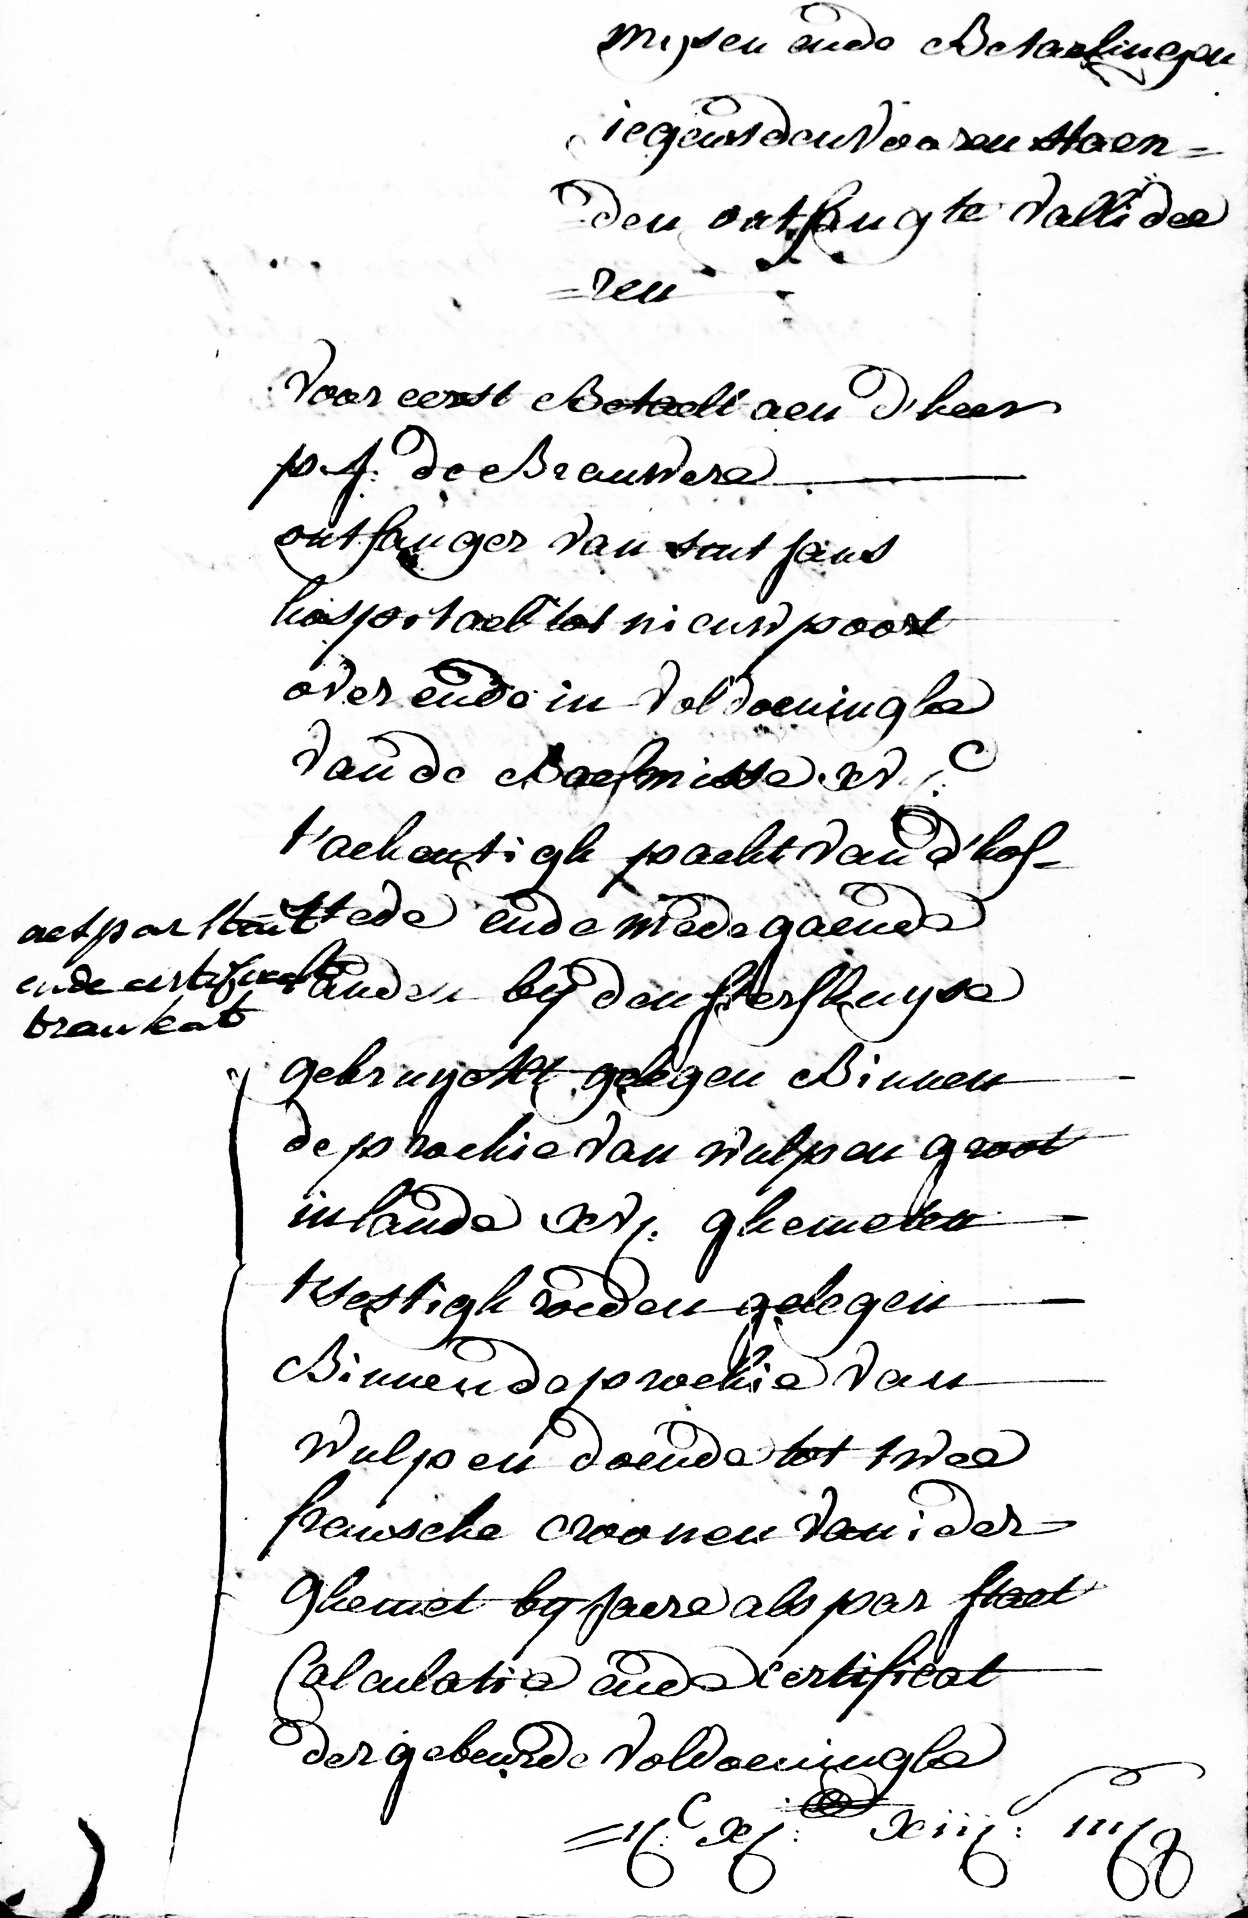 mijsen ende Betaelingen
iegens den vooren staen=
=den ontfangte vallidee
=ren
voor eerst Betaelt aen d'heer
p. j. de Brauwere
ontfanger van sint jans
hospitael tot nieuwpoort
over ende in voldoeninghe
van de Baefmisse xvij C
t'achentigh pacht van d'hof-
stede ende medegaende
landen bij den sterfhuyse
gebruyckt gelegen Binnen
de prochie van wulpen groot
in lande xvj. ghemeten
tsestigh roeden gelegen
Binnen de prochie van
wulpen doende tot twee
fransche croonen van ider
ghemet bij jaere als par staet
Calculatie ende certificat
der gebeurde voldoeninghe
act par staet
ende certificaet
=ij C xj: lb xiij: iiij